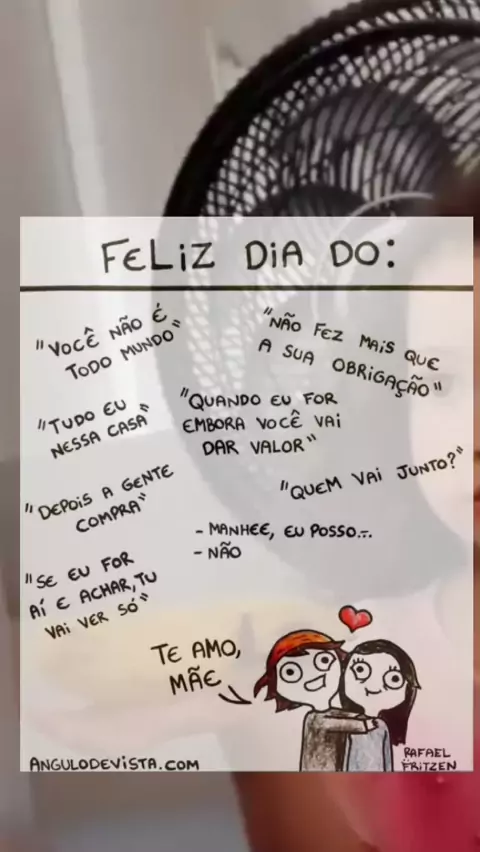 FELIZ DIA DO:
"VOCÊ NÃO É
TODO MUNDO"
"NÃO FEZ MAIS QUE
A SUA OBRIGAÇÃO"
"TUDO EU
NESSA CASA"
"QUANDO EU FOR
EMBORA VOCÊ VAI
DAR VALOR"
"DEPOIS A GENTE
COMPRA"
"QUEM VAI JUNTO?"
- MANHEE, EU POSSO...
- NÃO
"SE EU FOR
AÍ E ACHAR, TU
VAI VER SÓ"
TE AMO,
MÃE
ANGULODEVISTA.COM
RAFAEL
FRITZEN